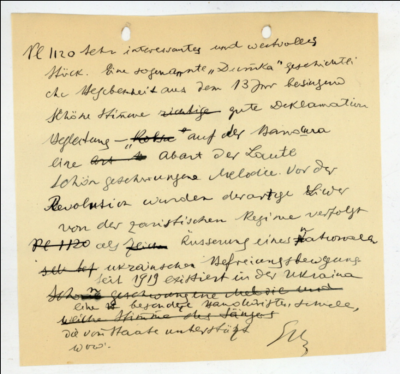 Pl 1120 Sehr interessantes und wertvolles
Stück. Eine sogenannte „Dumka" geschichtli
che Begebenheit aus dem 13 Jhr besingend
Schöne Stimme richtige gute Deklamation
Begleitung – „Kobsa" auf der Bandura
eine Art Abart der Laute
Schön geschwungene Melodie. Vor der
Revolution wurden derartige Lieder
von der zaristischen Regime verfolgt
Pl 1120 als Äusserung einer Nationalen
ukrainischen Befreiungsbewegung
seit 1919 existiert in der Ukraina
Schöne geschwungene Melodie und
eine besondere Bandouristen schule,
weiche Stimme des Sängers
die vom Staate unterstützt